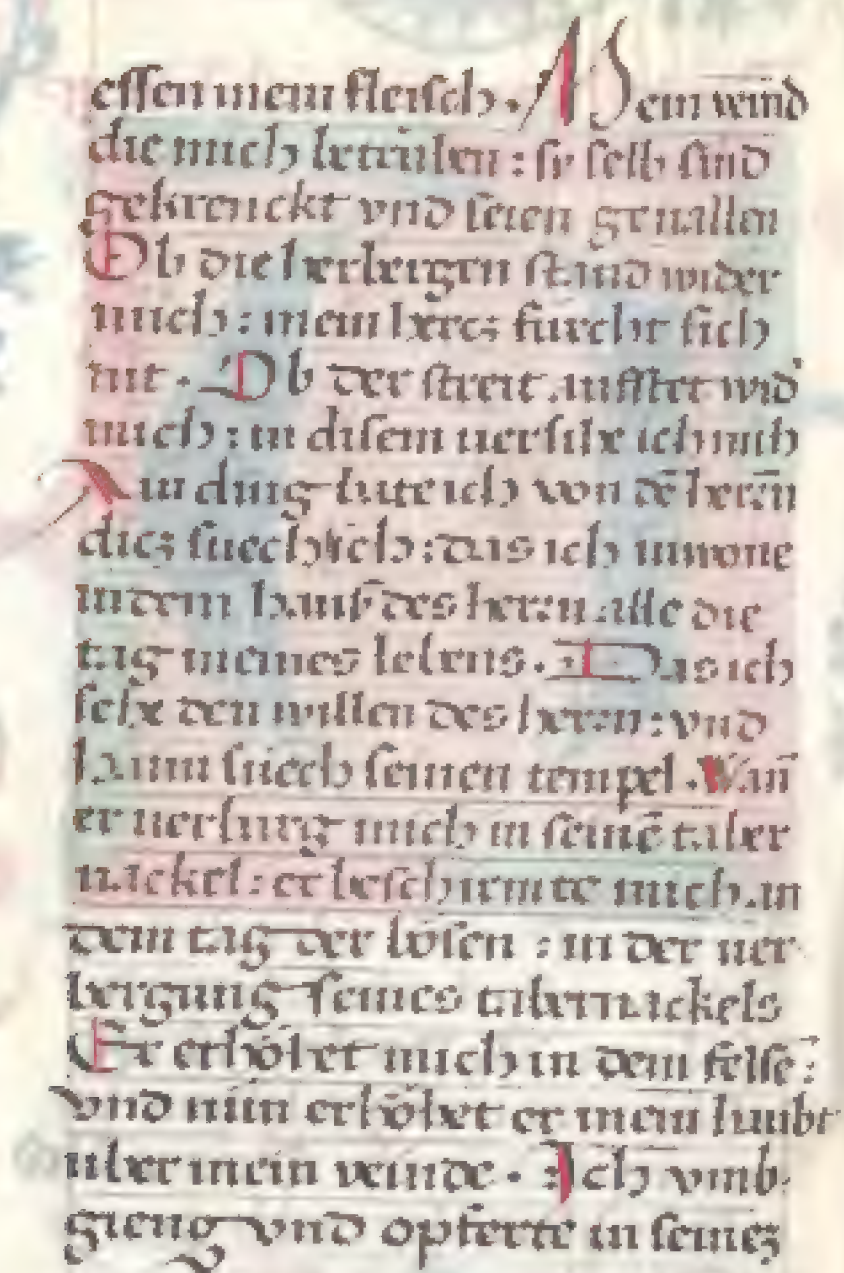 essen mein fleisch. Mein veind
die mich betrüben: sy selb sind
gekrenckt vnd seien geuallen
Ob die herbergen stand wider
mich: mein hercz furcht sich
nit. Ob der streit auffstet wid
mich: in disem versihe ich mich
Ain ding bitte ich von dē herrn
dicz suech ich: das ich inwone
in dem hauß des herrn alle die
tag meines lebens. Das ich
sehe den willen des herrn: vnd
haim suech seinen tempel. Wañ
er uerburg mich in seinē taber
nackel: er beschirmte mich in
dem tag der bösen: in der uer
bergung seines tabernackels
Er erhöhet mich in dem felsē:
vnd nun erhöhet er mein haubt
uber mein veinde. Ich vmb
gieng vnd opferte in seinez